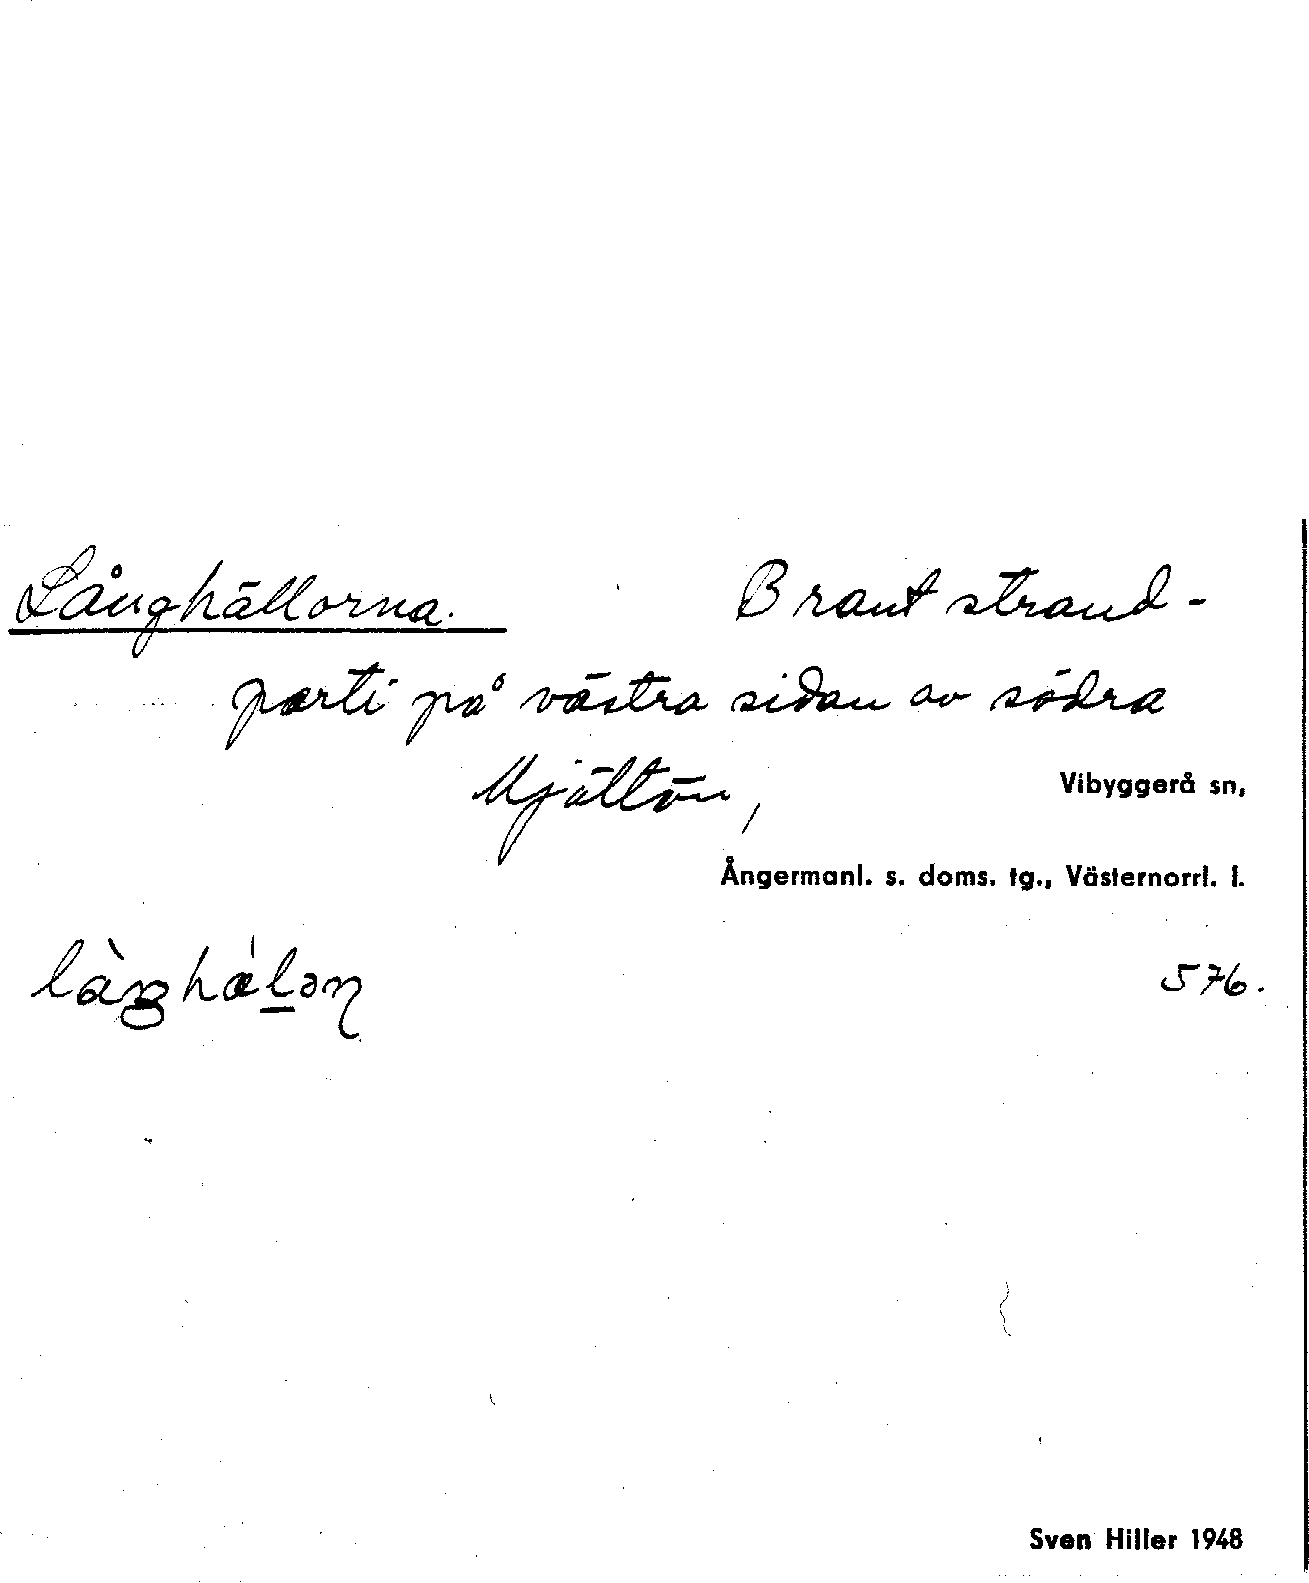 Långhällorna. Brant strand-
parti på västra sidan av södra
Mjältön, Vibyggerå sn,
Ångermanl. s. doms. tg., Västernorrl. l.
576.
Sven Hiller 1948